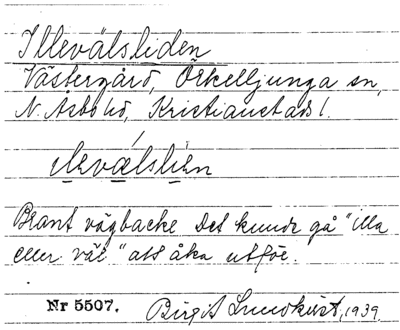 Illevälsliden
Västergård, Örkelljunga sn,
N. Åsbo hd, Kristianstads l.
ilevǽlslien
Brant vägbacke Det kunde gå "illa
eller väl" att åka utför.
Nr 5507. Birgit Lundkvist, 1939